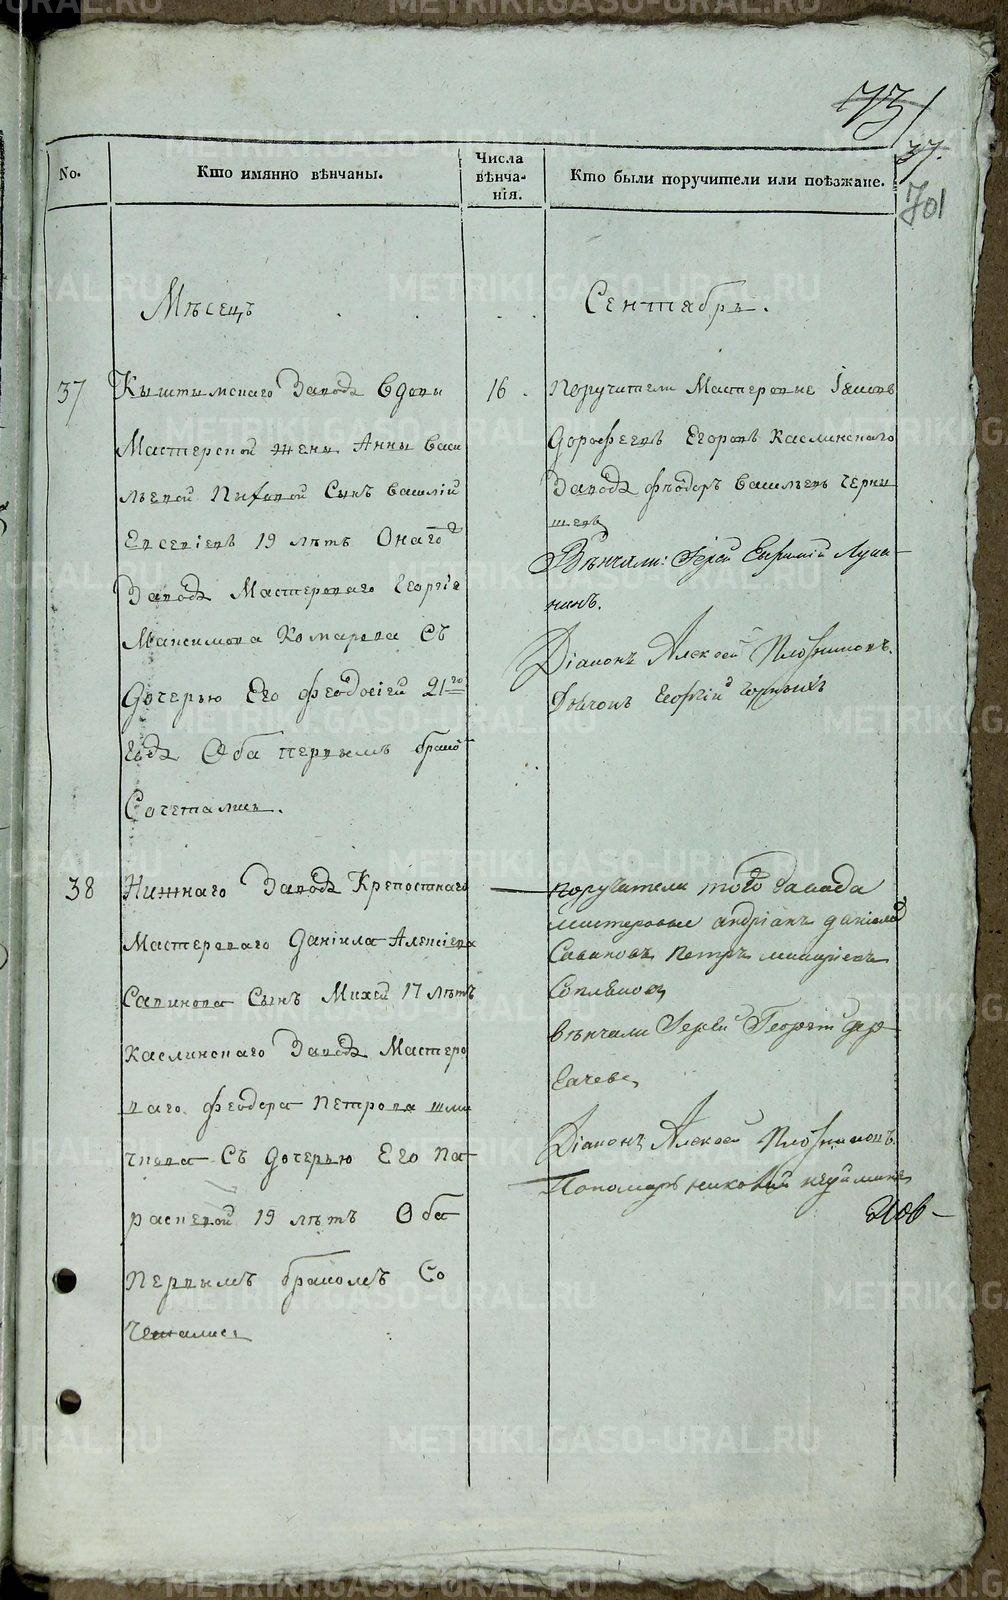 73
37.
701
No.
Кто имянно вѣнчаны.
Числа вѣнча-нія.
Кто были поручители или поѣзжане.
Мѣсецъ
Сентябрь.
37
Кыштымскаго Завода Вдовы
Мастерской жены Анны Васи
льевой Сынъ Василій
Евсевіевъ 19 лѣтъ Онаго
Завода Мастероваго Георгія
Максимова Комарова Съ
Дочерью Его Феодосіей 21го
Года Оба первымъ бракомъ
Сочетались.
16.
Поручители Мастеровые Іаковъ
Дорофеевъ Егоровъ Каслинскаго
Завода Феодоръ Васильевъ Черны
шевъ
Вѣнчали: Іерей Евфимій Лука-
нинъ.
Діаконъ Алексей Плотниковъ.
Дьячокъ Георгій
38
Нижнаго Завода Крепостнаго
Мастероваго Даніила Алексіева
Савинова Сынъ Михей 17 лѣтъ
Каслинскаго Завода Мастеро
ваго Феодора Петрова
Съ Дочерью Его Па
раскевой 19 лѣтъ Оба
Первымъ бракомъ Со
четались
поручители того завода
мастеровые андріанъ даніиловъ
Савиновъ Петръ
вѣнчали Іерей Георгій
Діаконъ Алексей Плотниковъ.
Пономарь
METRIKI.GASO-URAL.RU